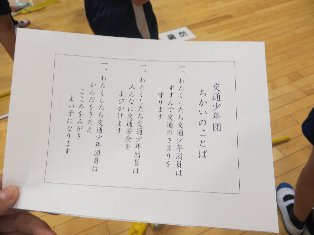 交通少年団
ちかいのことば
一、わたくしたち交通少年団員は
すすんで交通のきまりを
守ります
一、わたくしたち交通少年団員は
みんなに交通安全を
よびかけます
一、わたくしたち交通少年団員は
からだをきたえ
こころをみがき
よい子になります